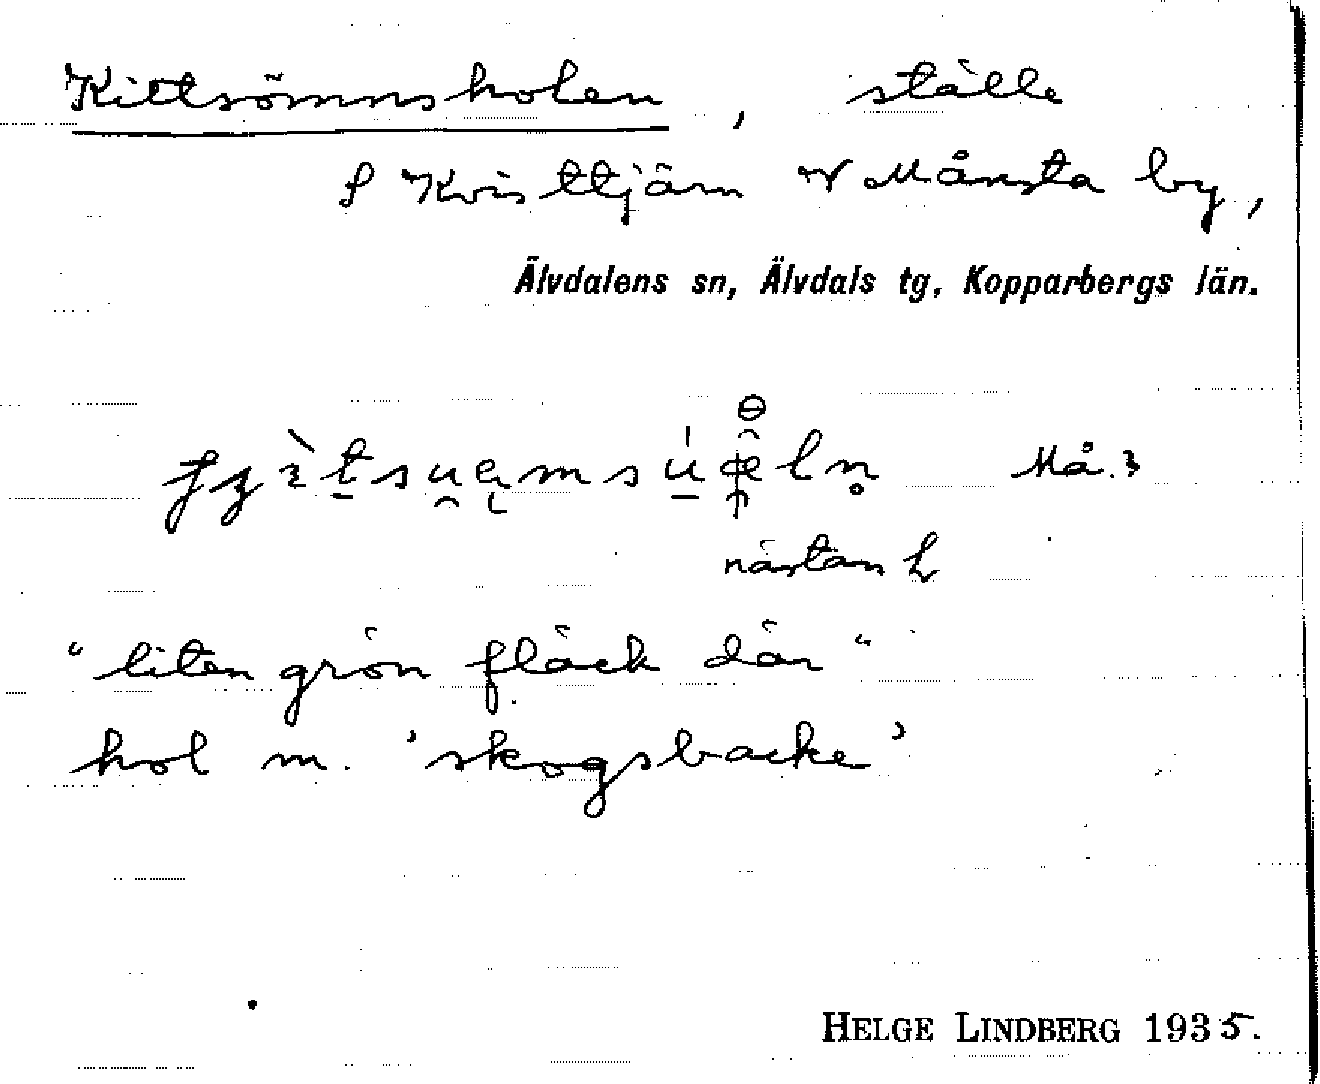 Kittsömnsholen, ställe
S Kvisttjärn V Månsta by,
Älvdalens sn, Älvdals tg, Kopparbergs län.
Må. 3
nästan
"liten grön fläck där"
hol m. 'skogsbacke'
HELGE LINDBERG 1935.